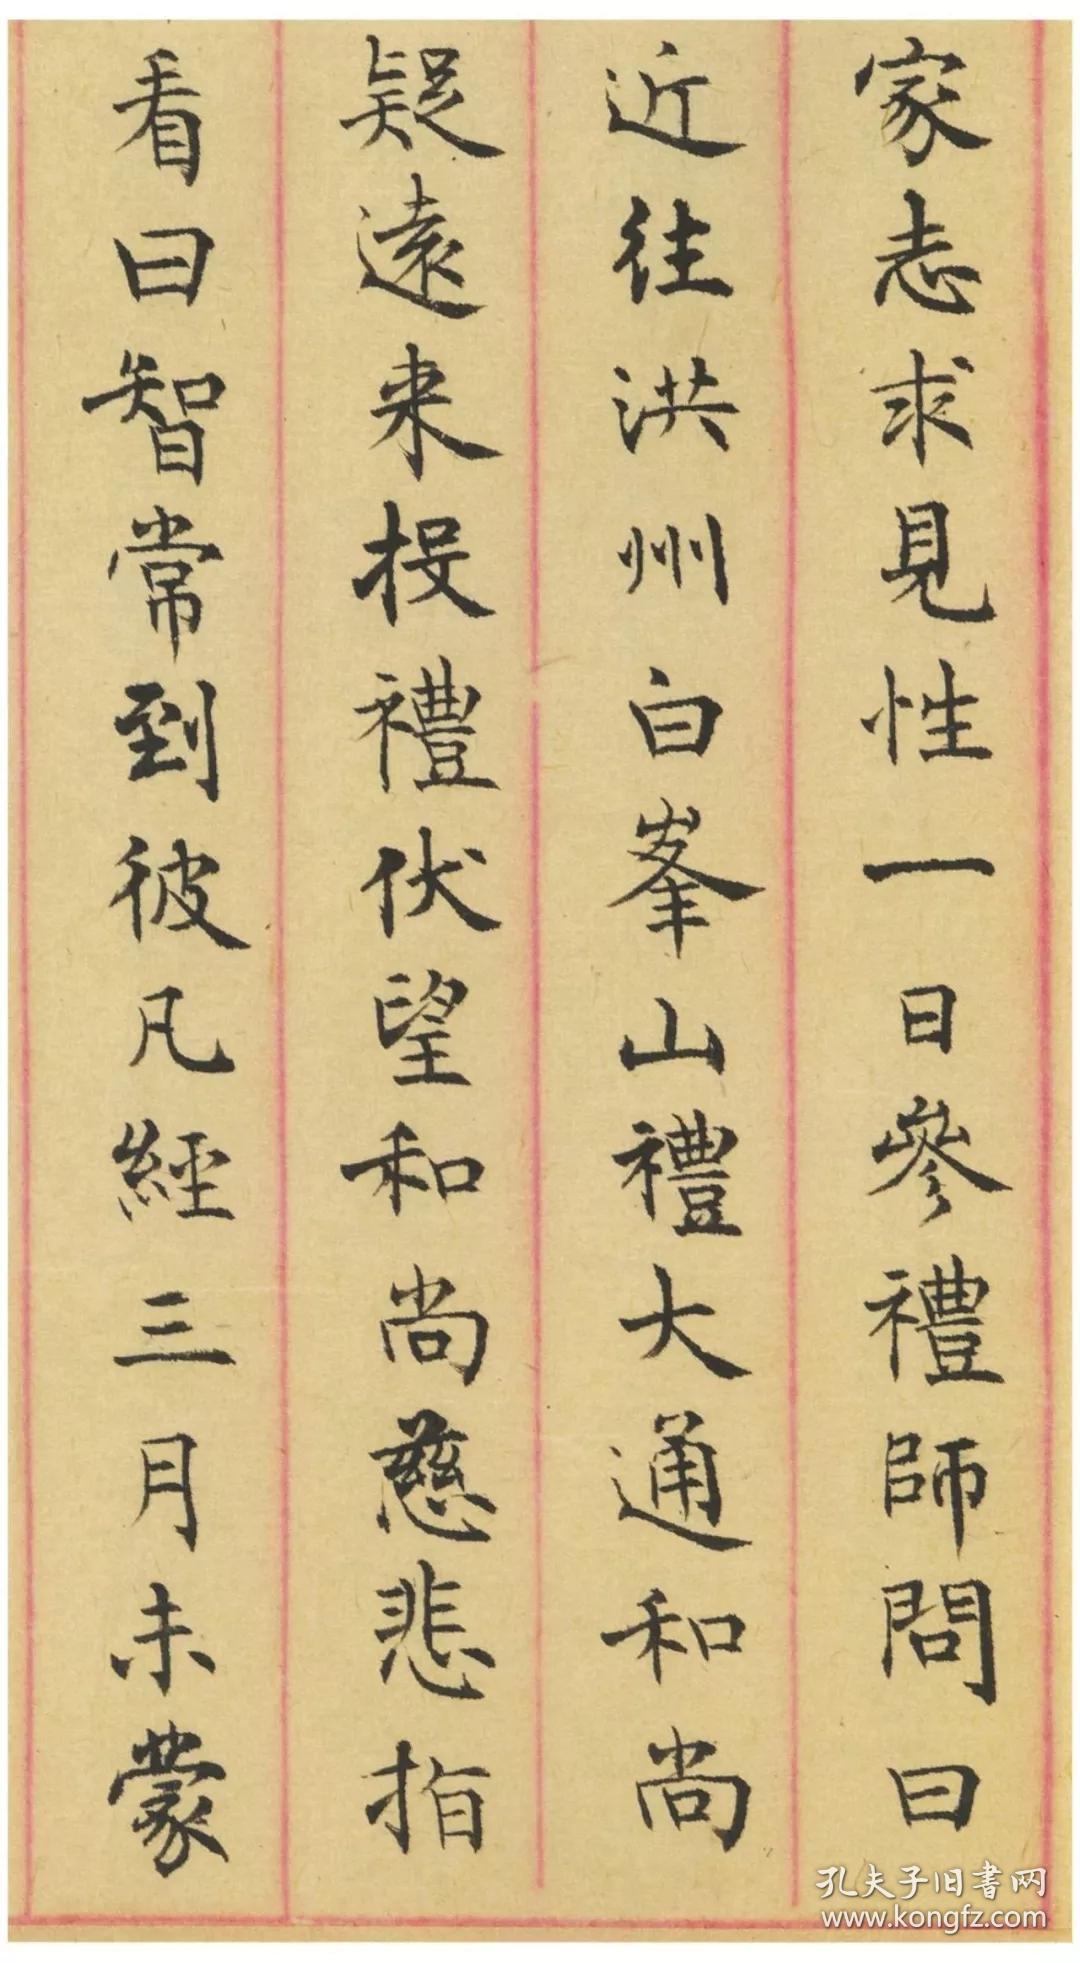 家志求見性一日參禮師問曰
近往洪州白峯山禮大通和尚
疑遠来投禮伏望和尚慈悲指
看曰智常到彼凡經三月未蒙
孔夫子旧書网
www.kongfz.com